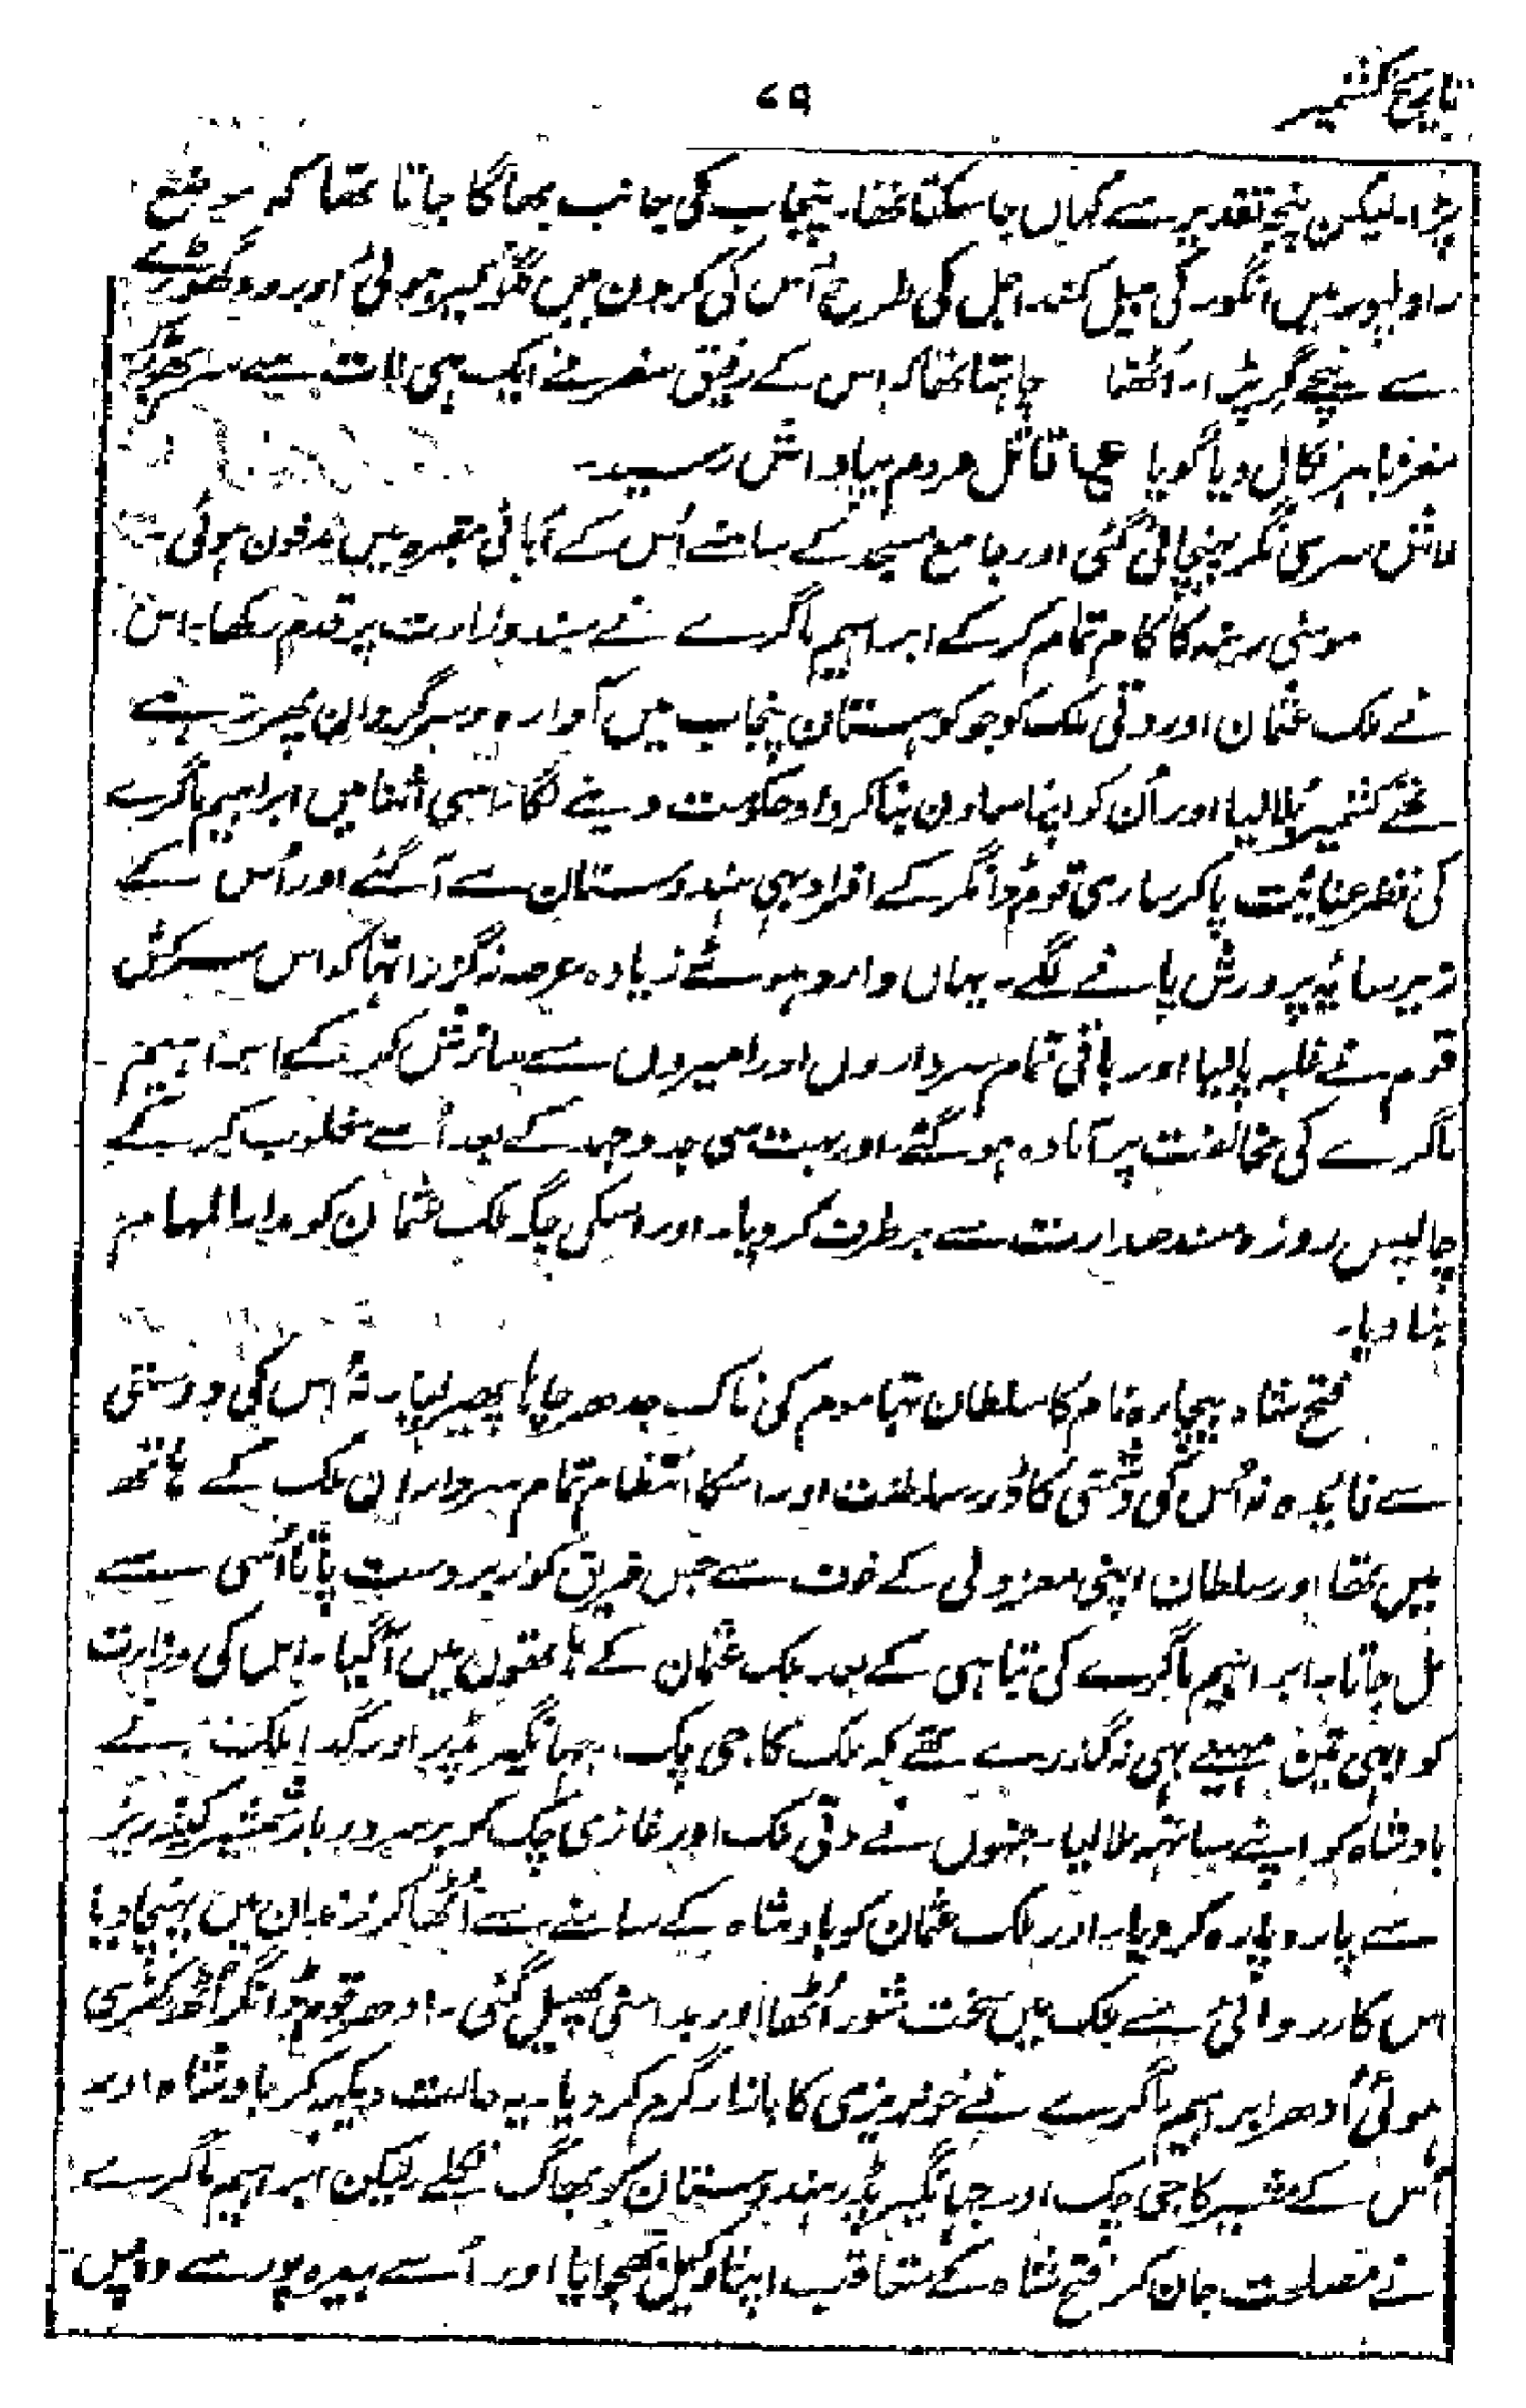 تاریخ کشمیر
۷۹
پڑا۔ لیکن پنجہ تقدیر سے کہاں جا سکتا تھا۔ پنجاب کی جانب بھاگا جاتا تھا کہ موضع
راولپور میں انگور کی بیل کمند اجل کی طرح اُس کی گردن میں گلوگیر ہوئی اور وہ گھوڑے
سے نیچے گر پڑا۔ اُٹھنا چاہتا تھا کہ اس کے رفیق سفر نے ایک ہی لات سے سر
مغز باہر نکال دیا گویا ع قاتل مردم بپاداش رسید۔
لاش سری نگر پہنچائی گئی اور جامع مسجد کے سامنے اُس کے آبائی مقبرہ میں مدفون ہوئی۔
موسٰی رینہ کا کام تمام کر کے ابراہیم ماگرے نے مسند وزارت پر قدم رکھا۔ اس
نے ملک عثمان اور دتی ملک کو جو کوہستان پنجاب میں آوارہ و سرگردان پھر رہے
تھے کشمیر بُلا لیا اور اُن کو اپنا معاون بنا کر داد حکومت دینے لگا۔ اسی اثنا میں ابراہیم ماگرے
کی نظر عنایت پا کر ساری قوم ڈانگر کے افراد بھی ہندوستان سے آ گئے اور اُس کے
زیر سایہ پرورش پانے لگے۔ یہاں وارد ہوئے زیادہ عرصہ نہ گزرا تہا کہ اس سرکش
قوم نے غلبہ پا لیا اور باقی تمام سرداروں اور امیروں سے سازش کر کے ابراہیم
ماگرے کی مخالفت پر آمادہ ہو گئے۔ اور بہت سی جدوجہد کے بعد اُسے مغلوب کر کے
چالیس روزہ مسند صدارت سے برطرف کر دیا۔ اور اسکی جگہ ملک عثمان کو مدارالمہام
بنا دیا۔
فتح شاہ بیچارہ نام کا سلطان تہا موم کی ناک جدھر چاہا پھیر لیا۔ نہ اُس کی دوستی
سے فائدہ نہ اُس کی دشمنی کا ڈر۔ سلطنت اور اسکا انتظام تمام سرداران ملک کے ہاتھ
میں تھا اور سلطان اپنی معزولی کے خوف سے جس فریق کو زبردست پاتا اُسی سے
مل جاتا۔ ابراہیم ماگرے کی تباہی کے بعد ملک عثمان کے ہاتھوں میں آ گیا۔ اس کی وزارت
کو ابھی تین مہینے بھی نہ گذرے تھے کہ ملک کاجی چک، جہانگیر پڈر اور گدا ملک نے
بادشاہ کو اپنے ساتھ ملا لیا۔ جنہوں نے دتی ملک اور غازی چک کو برسردربار شمشیر
سے پارہ پارہ کر دیا۔ اور ملک عثمان کو بادشاہ کے سامنے سے اُٹھا کر زندان میں پہنچا دیا
اس کارروائی سے ملک میں سخت شور اُٹھا اور بدامنی پھیل گئی۔ ادھر قوم ڈانگر اُٹھ کھڑی
ہوئی اُدھر ابراہیم ماگرے نے خونریزی کا بازار گرم کر دیا۔ یہ حالت دیکھ کر بادشاہ اور
اُس کے مشیر کاجی چک اور جہانگیر پڈر ہندوستان کو بھاگ نکلے لیکن ابراہیم ماگرے
نے مصلحت جان کر فتح شاہ کے متعاقب اپنا وکیل بھجوایا اور اُسے ہیرہ پور سے واپس